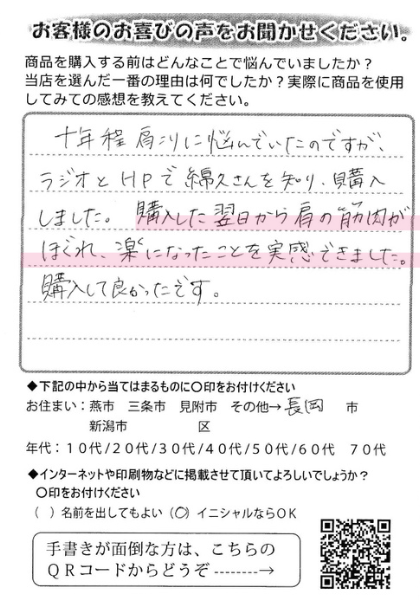 お客様のお喜びの声をお聞かせください。
商品を購入する前はどんなことで悩んでいましたか?
当店を選んだ一番の理由は何でしたか?実際に商品を使用
してみての感想を教えてください。
十年程肩こりに悩んでいたのですが、
ラジオとHPで綿久さんを知り、購入
しました。購入した翌日から肩の筋肉が
ほぐれ、楽になったことを実感できました。
購入して良かったです。
◆下記の中から当てはまるものに〇印をお付けください
お住まい:燕市 三条市 見附市 その他→長岡 市
新潟市 区
年代:10代/20代/30代/40代/50代/60代 70代
◆インターネットや印刷物などに掲載させて頂いてよろしいでしょうか?
〇印をお付けください
( )名前を出してもよい (〇)イニシャルならOK
手書きが面倒な方は、こちらの
QRコードからどうぞ-------→